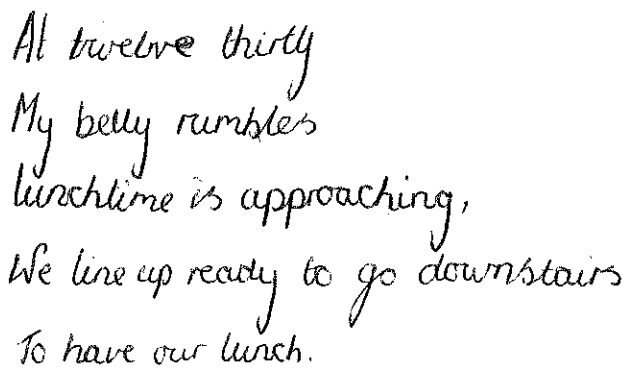 At twelve thirty
My belly rumbles
lunchtime is approaching,
We line up ready to go downstairs
To have our lunch.